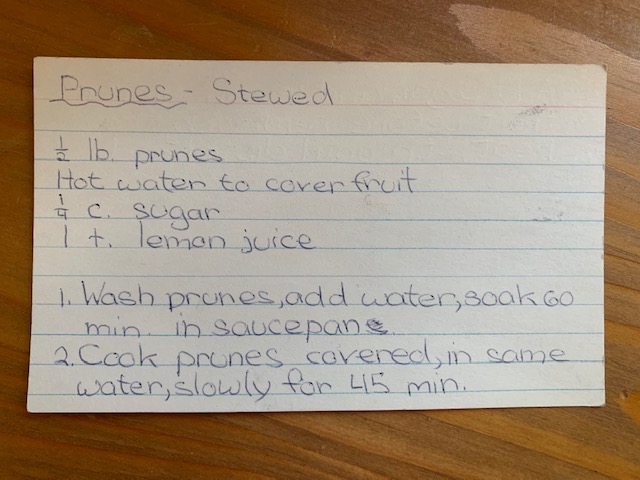 Prunes - Stewed
1/2 lb. prunes
Hot water to cover fruit
1/4 c. sugar
1 t. lemon juice
1. Wash prunes, add water, soak 60
min. in saucepan
2. Cook prunes covered, in same
water, slowly for 45 min.